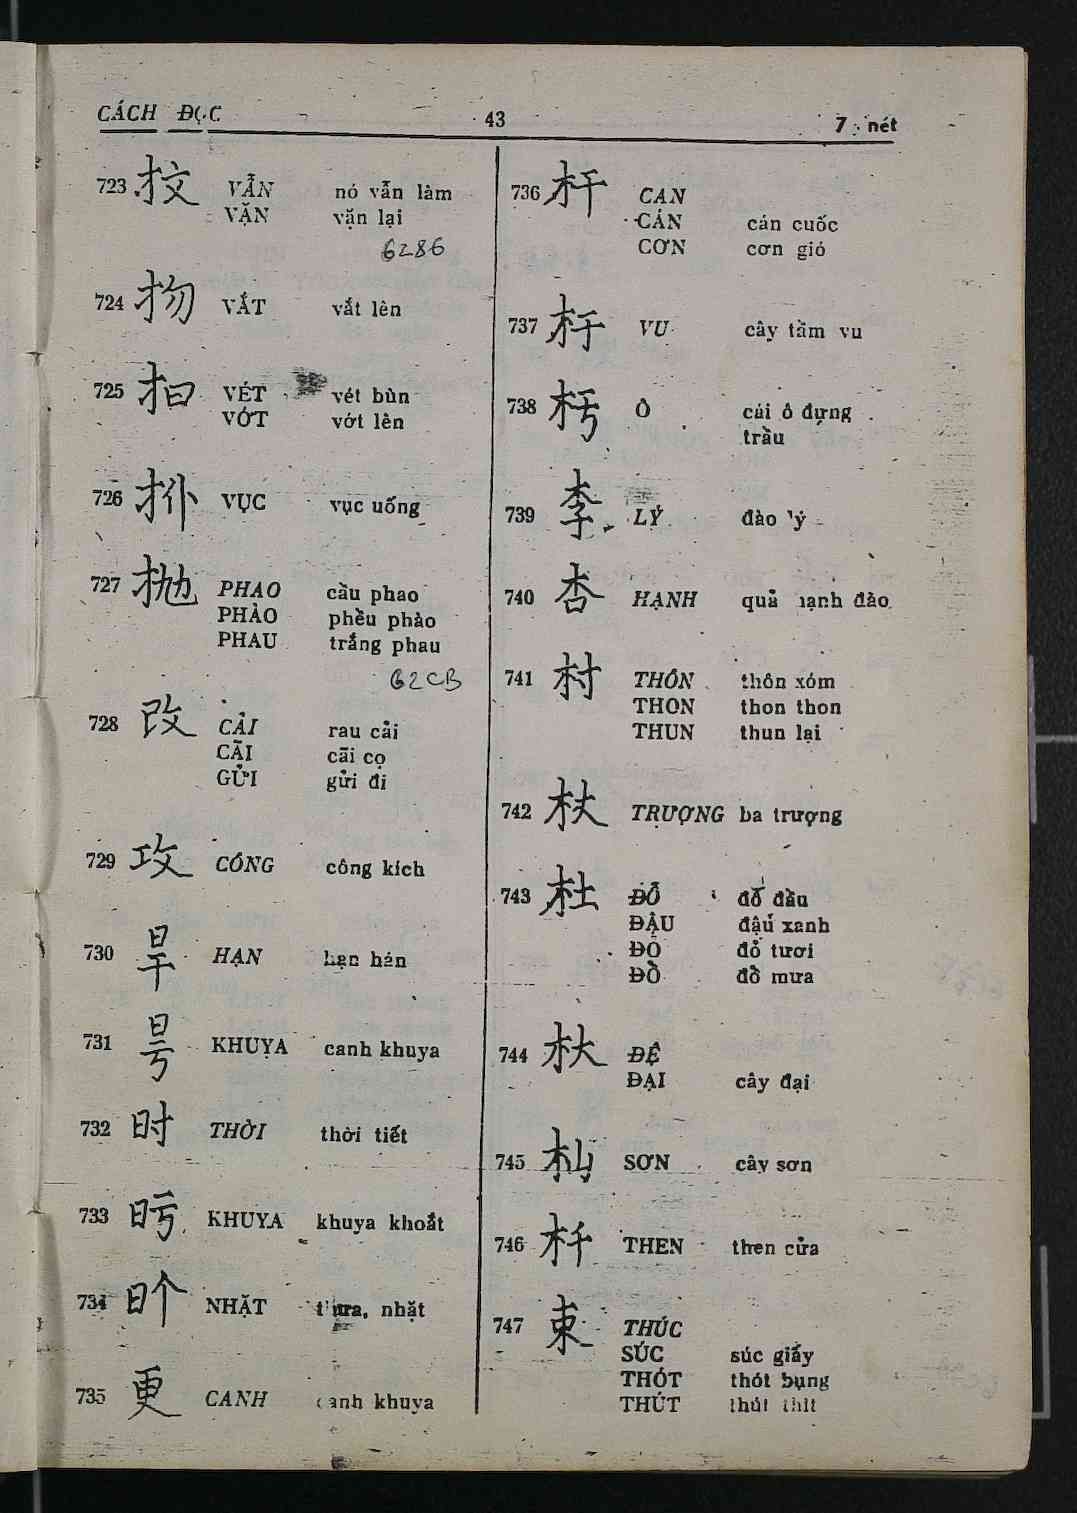 CÁCH ĐỌC 43 7 nét
723 抆 VẪN nó vẫn làm
VẶN vặn lại
6286
724 扨 VẮT vắt lên
725 抇 VÉT vét bùn
VỚT vớt lên
726 VỤC vục uống
727 抛 PHAO cầu phao
PHÀO phều phào
PHAU trắng phau
62CB
728 改 CẢI rau cải
CÃI cãi cọ
GỬI gửi đi
729 攻 CÔNG công kích
730 旱 HẠN hạn hán
731 KHUYA canh khuya
732 时 THỜI thời tiết
733 旴 KHUYA khuya khoắt
734 NHẶT thưa, nhặt
735 更 CANH canh khuya
736 杆 CAN
CÁN cán cuốc
CƠN cơn gió
737 杅 VU cây tầm vu
738 杇 Ô cái ô đựng
trầu
739 李 LÝ đào lý
740 杏 HẠNH quả hạnh đào
741 村 THÔN thôn xóm
THON thon thon
THUN thun lại
742 杖 TRƯỢNG ba trượng
743 杜 ĐỖ đỗ đầu
ĐẬU đậu xanh
ĐỎ đỏ tươi
ĐỒ đồ mưa
744 杕 ĐỆ
ĐẠI cây đại
745 杣 SƠN cây sơn
746 杄 THEN then cửa
747 束 THÚC
SÚC súc giấy
THÓT thót bụng
THÚT thút thít